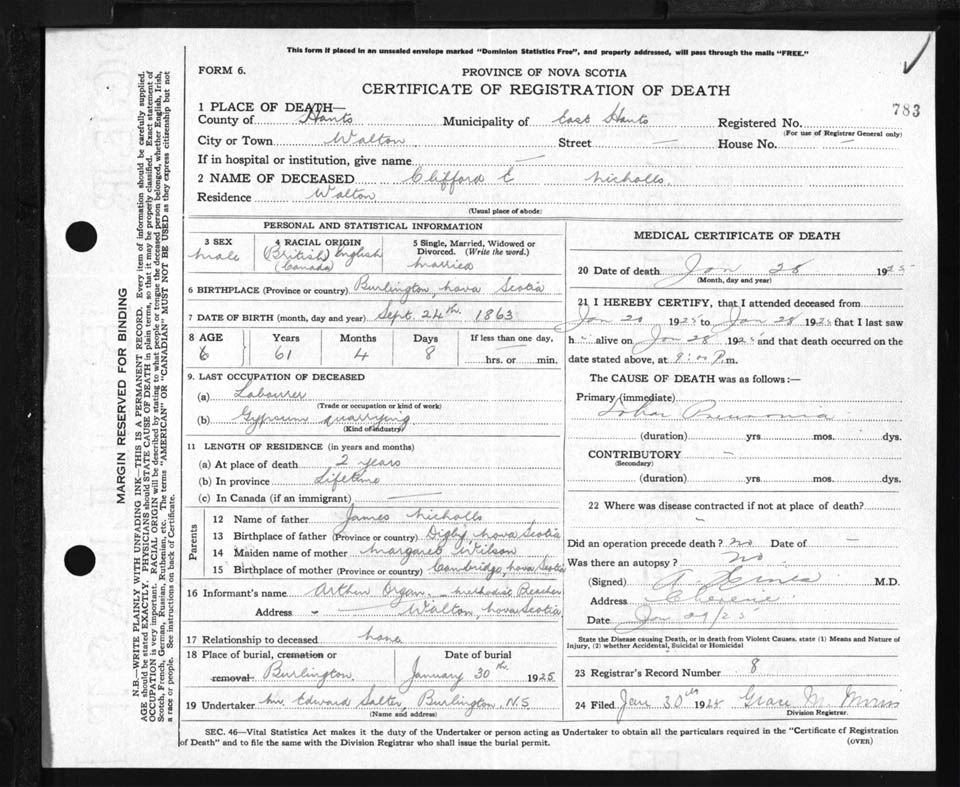 This form if placed in an unsealed envelope marked "Dominion Statistics Free", and properly addressed, will pass through the mails "FREE."
FORM 6.
PROVINCE OF NOVA SCOTIA
CERTIFICATE OF REGISTRATION OF DEATH
783
1 PLACE OF DEATH—
County of Hants Municipality of East Hants Registered No.
(For use of Registrar General only)
City or Town Walton Street — House No. —
If in hospital or institution, give name —
2 NAME OF DECEASED Clifford E Nicholls.
Residence Walton
(Usual place of abode)
PERSONAL AND STATISTICAL INFORMATION
3 SEX
Male
4 RACIAL ORIGIN
(British) English
(Canada)
5 Single, Married, Widowed or Divorced. (Write the word.)
Married
6 BIRTHPLACE (Province or country) Burlington, Nova Scotia
7 DATE OF BIRTH (month, day and year) Sept. 24th. 1863
8 AGE Years Months Days If less than one day,
6 61 4 8 hrs. or min.
9. LAST OCCUPATION OF DECEASED
(a) Labourer
(Trade or occupation or kind of work)
(b) Gypsum quarrying
(Kind of industry)
11 LENGTH OF RESIDENCE (in years and months)
(a) At place of death 2 years
(b) In province Lifetime
(c) In Canada (if an immigrant) —
Parents
12 Name of father James Nicholls
13 Birthplace of father (Province or country) Digby, Nova Scotia
14 Maiden name of mother Margaret Wilson
15 Birthplace of mother (Province or country) Cambridge, Nova Scotia
16 Informant's name Arthur Organ Methodist Preacher
Address Walton, Nova Scotia
17 Relationship to deceased none
18 Place of burial, cremation or removal. Burlington
Date of burial January 30th. 1925.
19 Undertaker Mr. Edward Salter, Burlington, N.S
(Name and address)
MEDICAL CERTIFICATE OF DEATH
20 Date of death Jan 28 1925
(Month, day and year)
21 I HEREBY CERTIFY, that I attended deceased from
Jan 20 1925 to Jan 28 1925 that I last saw
h alive on Jan 28 1925 and that death occurred on the
date stated above, at 9:00 P.m.
The CAUSE OF DEATH was as follows:—
Primary (immediate)
Lobar Pneumonia
(duration) yrs. mos. dys.
CONTRIBUTORY —
(Secondary)
(duration) yrs. mos. dys.
22 Where was disease contracted if not at place of death?
Did an operation precede death? No Date of —
Was there an autopsy? No
(Signed) A M.D.
Address Cheverie
Date Jan 29/25
State the Disease causing Death, or in death from Violent Causes, state (1) Means and Nature of Injury, (2) whether Accidental, Suicidal or Homicidal
23 Registrar's Record Number 8
24 Filed Jan 30th 1925 Grace M.
Division Registrar.
SEC. 46—Vital Statistics Act makes it the duty of the Undertaker or person acting as Undertaker to obtain all the particulars required in the "Certificate of Registration
of Death" and to file the same with the Division Registrar who shall issue the burial permit.
(OVER)
MARGIN RESERVED FOR BINDING
N.B.—WRITE PLAINLY WITH UNFADING INK—THIS IS A PERMANENT RECORD. Every item of information should be carefully supplied.
AGE should be stated EXACTLY. PHYSICIANS should STATE CAUSE OF DEATH in plain terms, so that it may be properly classified. Exact statement of
OCCUPATION is very important. RACIAL ORIGIN will be described by stating to what people or tongue the deceased person belonged, whether English, Irish,
Scotch, French, German, Russian, Ruthenian, etc. The terms "AMERICAN" OR "CANADIAN" MUST NOT BE USED as they express citizenship but not
a race or people. See instructions on back of Certificate.